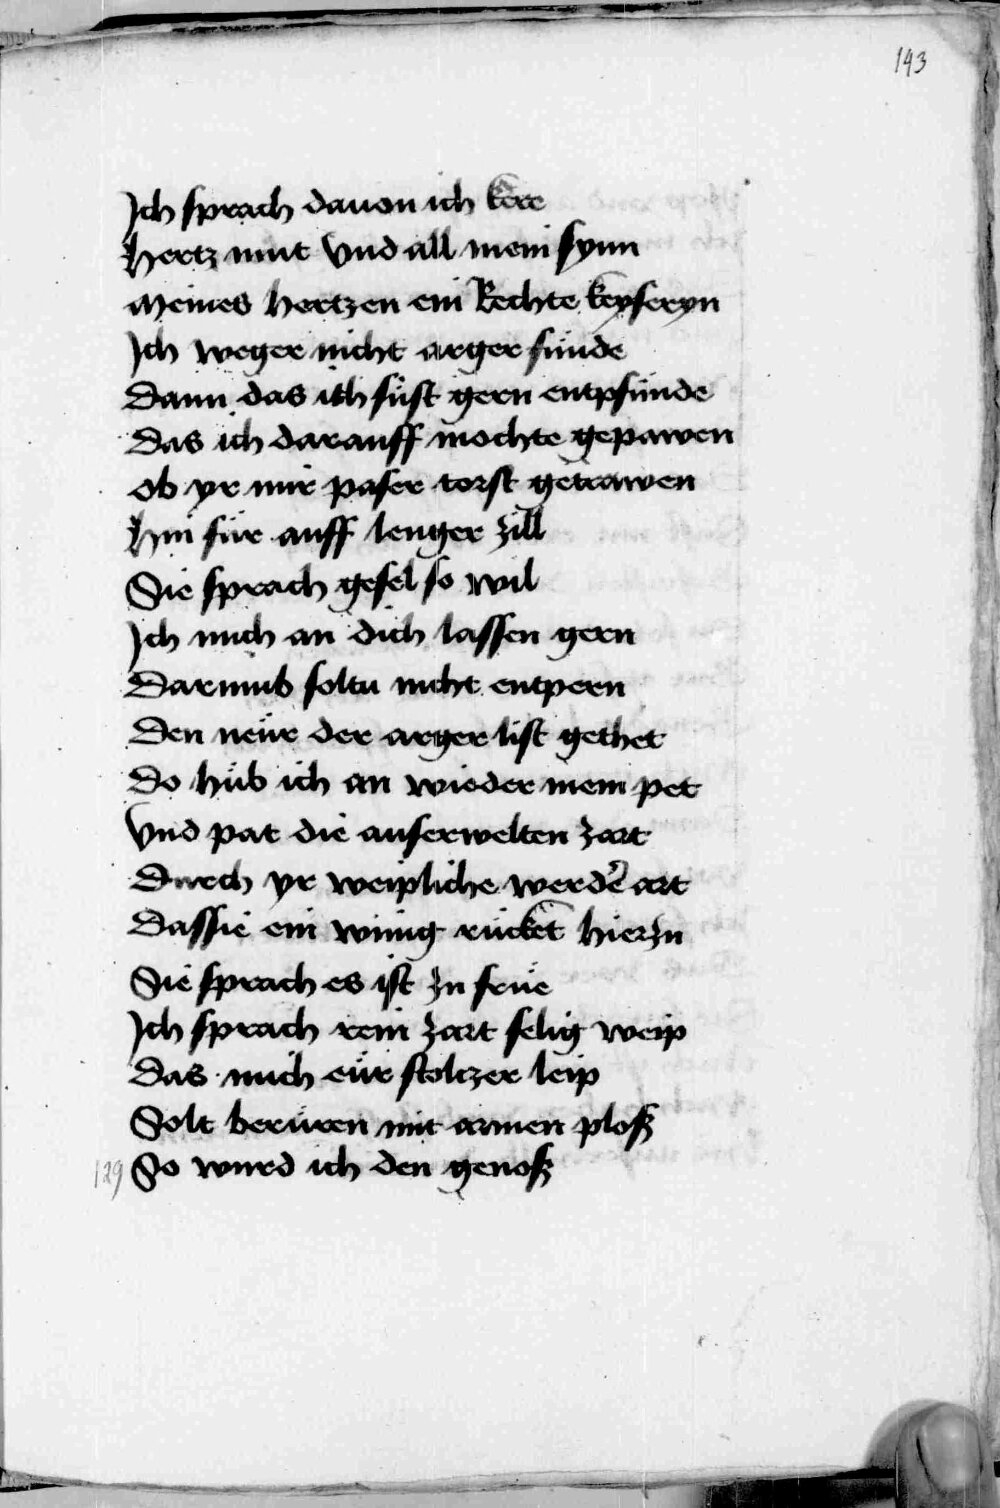 143
Ich sprach dauon ich kere
Hertz mut Vnd all mein synn
Meines hertzen ein Rechte keyseryn
Ich weger nicht arger sünde
Dann das ich süst gern entpfünde
Das ich darauff mochte gepawen
ob yr mir paser torst getrawen
Hin für auff lenger zill
Sie sprach gesel so wil
Ich mich an dich lassen gern
Darumb soltu nicht entpern
Den neür der arger list gethet
Do hüb ich an wieder mein pet
Vnd pat die auserwelten zart
Durch yr weipliche werde art
Dassie ein winig rücket hierzu
Sie sprach es ist zu früe
Ich sprach rein zart selig weip
Das mich eür stolczer leip
Solt berüren mit armen ploß
129 So wurd ich den genoß